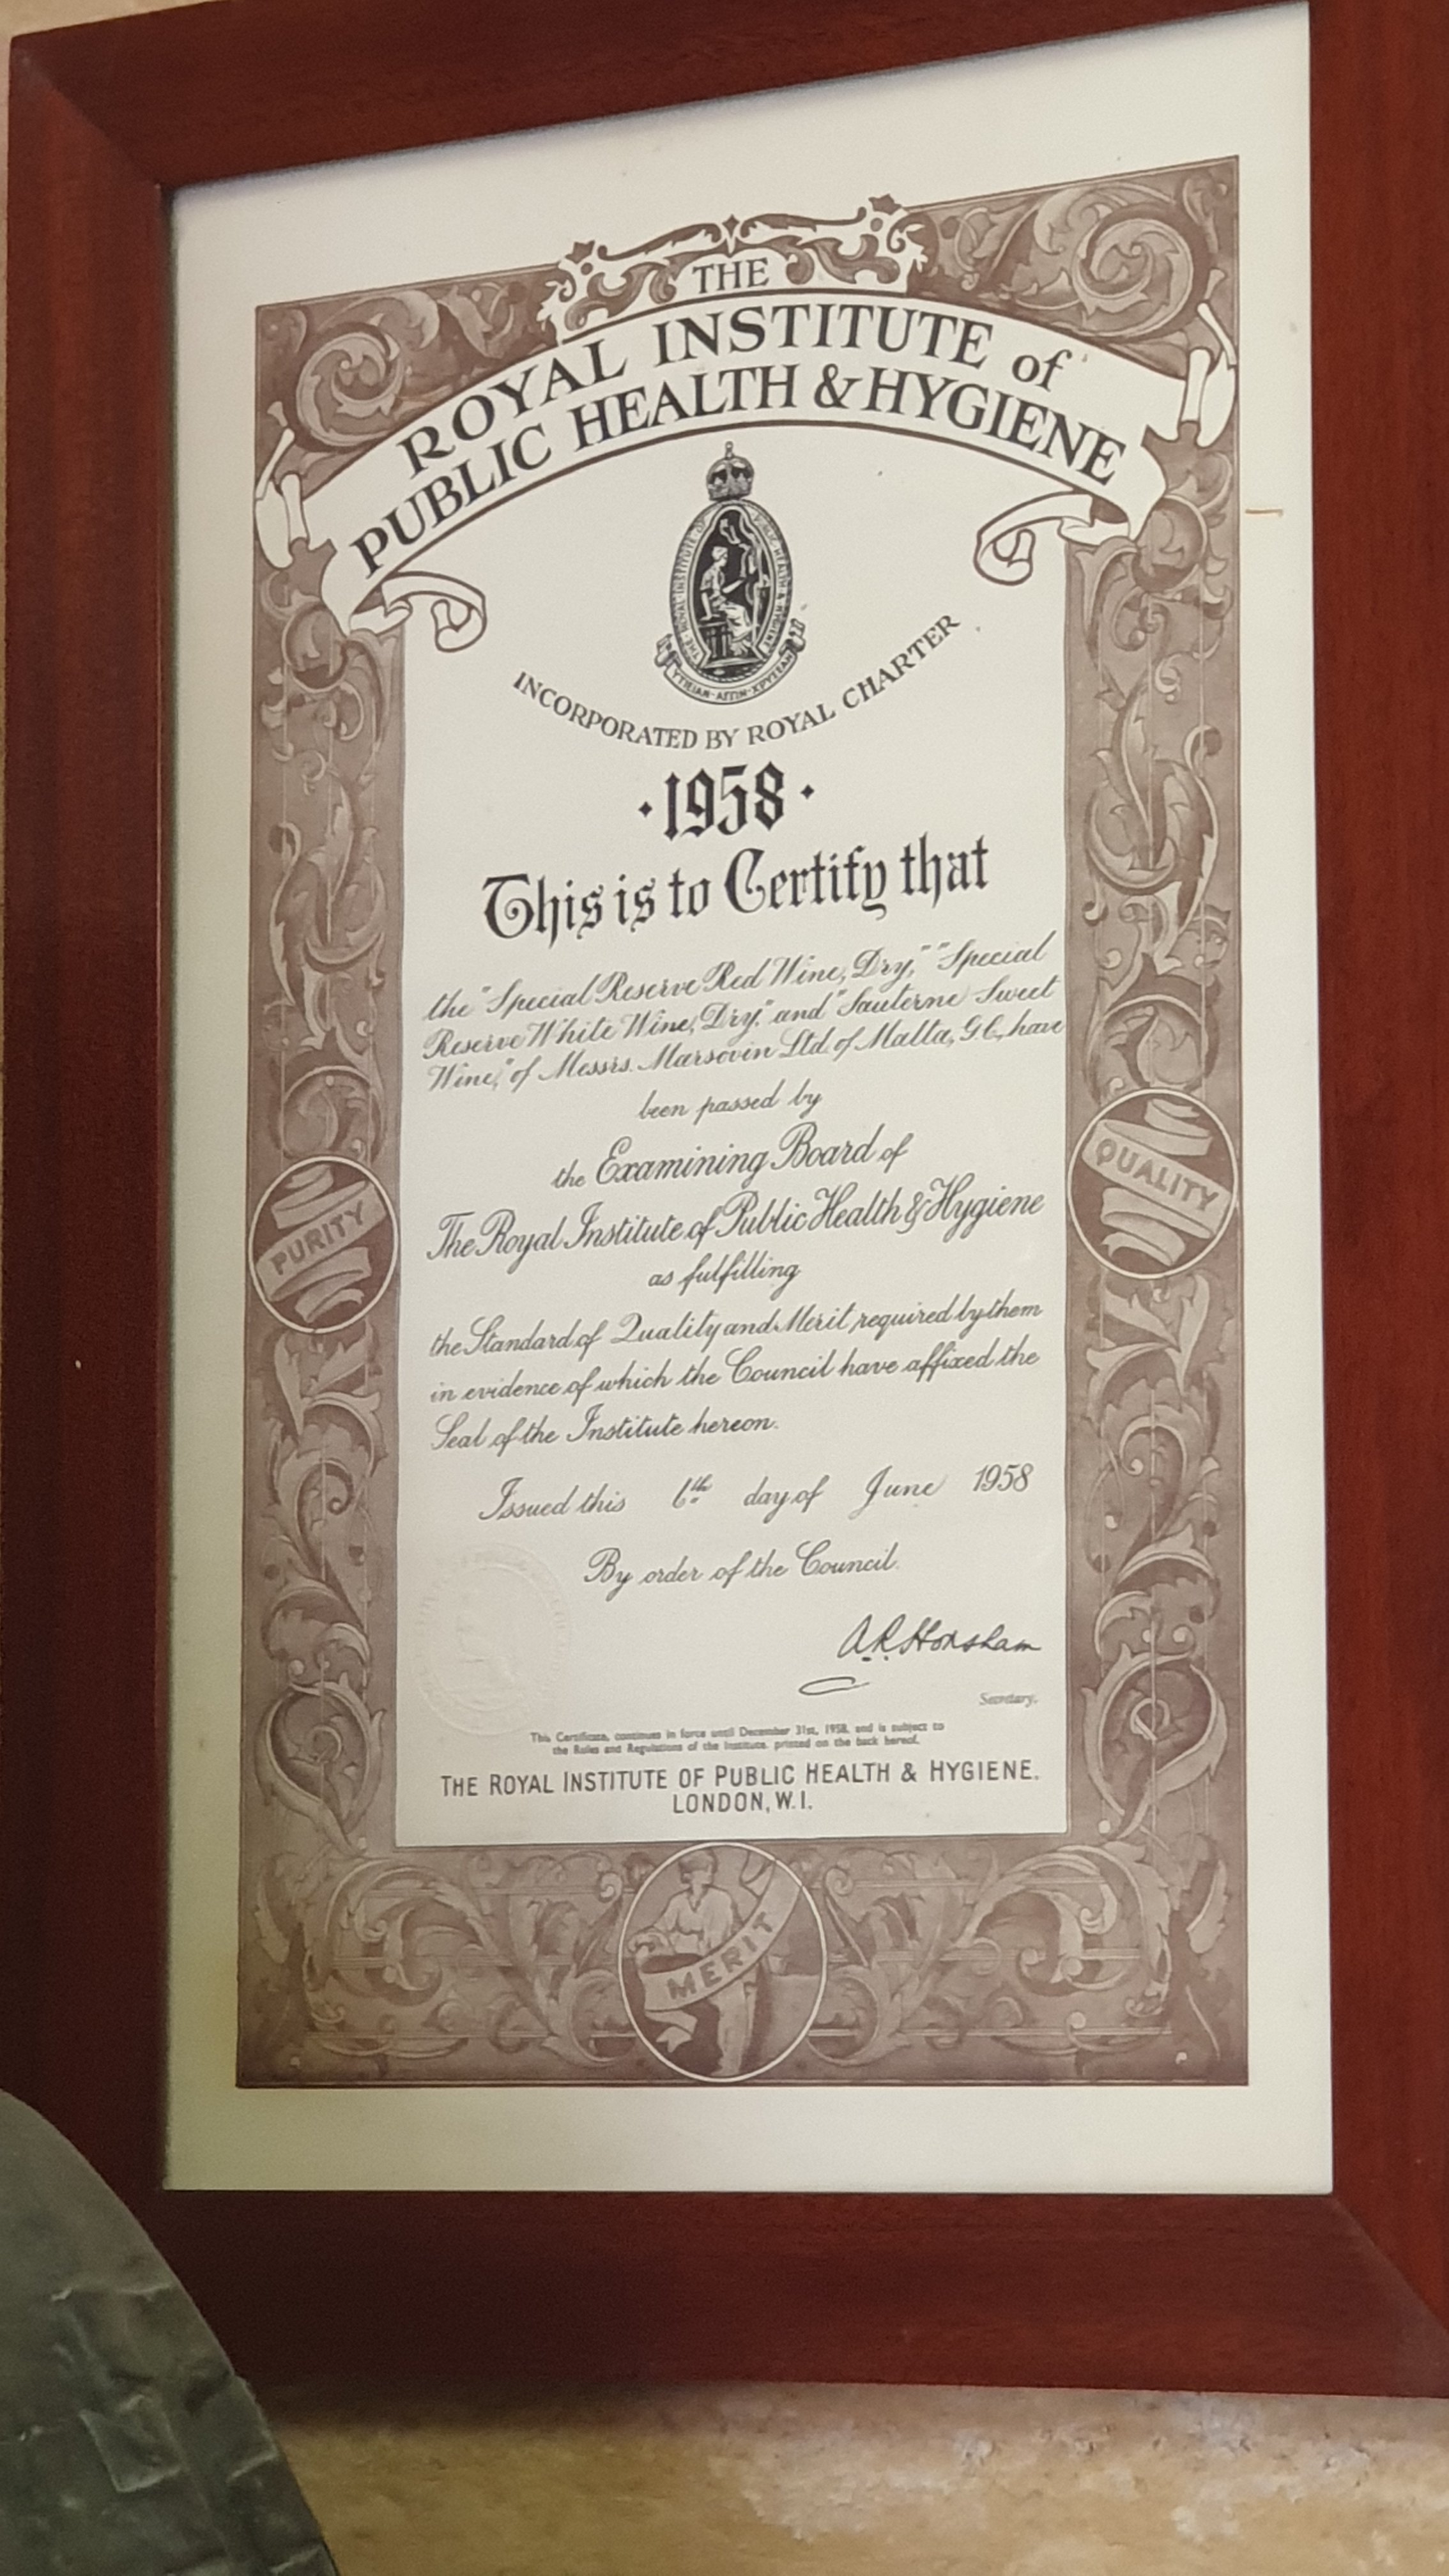 THE
ROYAL INSTITUTE of
PUBLIC HEALTH & HYGIENE
INCORPORATED BY ROYAL CHARTER
·1958·
This is to Certify that
the "Special Reserve Red Wine, Dry," "Special
Reserve White Wine, Dry," and "Sauterne Sweet
Wine," of Messrs. Marsovin Ltd. of Malta, G.C., have
been passed by
the Examining Board of
The Royal Institute of Public Health & Hygiene
as fulfilling
the Standard of Quality and Merit required by them
in evidence of which the Council have affixed the
Seal of the Institute hereon.
Issued this 6th day of June 1958
By order of the Council.
A.R. Horsham
Secretary.
This Certificate, continues in force until December 31st, 1958, and is subject to
the Rules and Regulations of the Institute, printed on the back hereof.
THE ROYAL INSTITUTE OF PUBLIC HEALTH & HYGIENE.
LONDON, W.1.
PURITY
QUALITY
MERIT